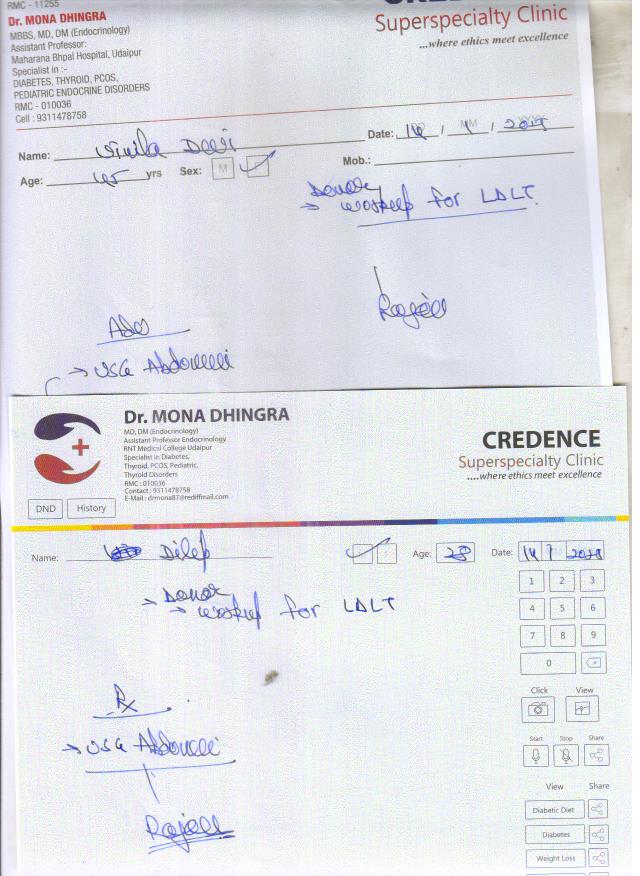 RMC - 11255
Dr. MONA DHINGRA
MBBS, MD, DM (Endocrinology)
Assistant Professor:
Maharana Bhpal Hospital, Udaipur
Specialist in :-
DIABETES, THYROID, PCOS,
PEDIATRIC ENDOCRINE DISORDERS
RMC - 010036
Cell : 9311478758
Superspecialty Clinic
...where ethics meet excellence
Name: Devi
Date: 14 / 7 /
Age: 45 yrs Sex: M
Mob.:
Donor
→ workup for LDLT
Adv
→ USG Abdomen
Dr. MONA DHINGRA
MD, DM (Endocrinology)
Assistant Professor Endocrinology
RNT Medical College Udaipur
Specialist in Diabetes,
Thyroid, PCOS, Pediatric,
Thyroid Disorders
RMC : 010036
Contact : 9311478758
E-Mail : drmona87@rediffmail.com
CREDENCE
Superspecialty Clinic
....where ethics meet excellence
DND History
Name: Dilip Age: 28 Date: 14 7
→ Donor
→ workup for LDLT
Rx
→ USG Abdomen
1 2 3
4 5 6
7 8 9
0
Click View
Start Stop Share
View Share
Diabetic Diet
Diabetes
Weight Loss